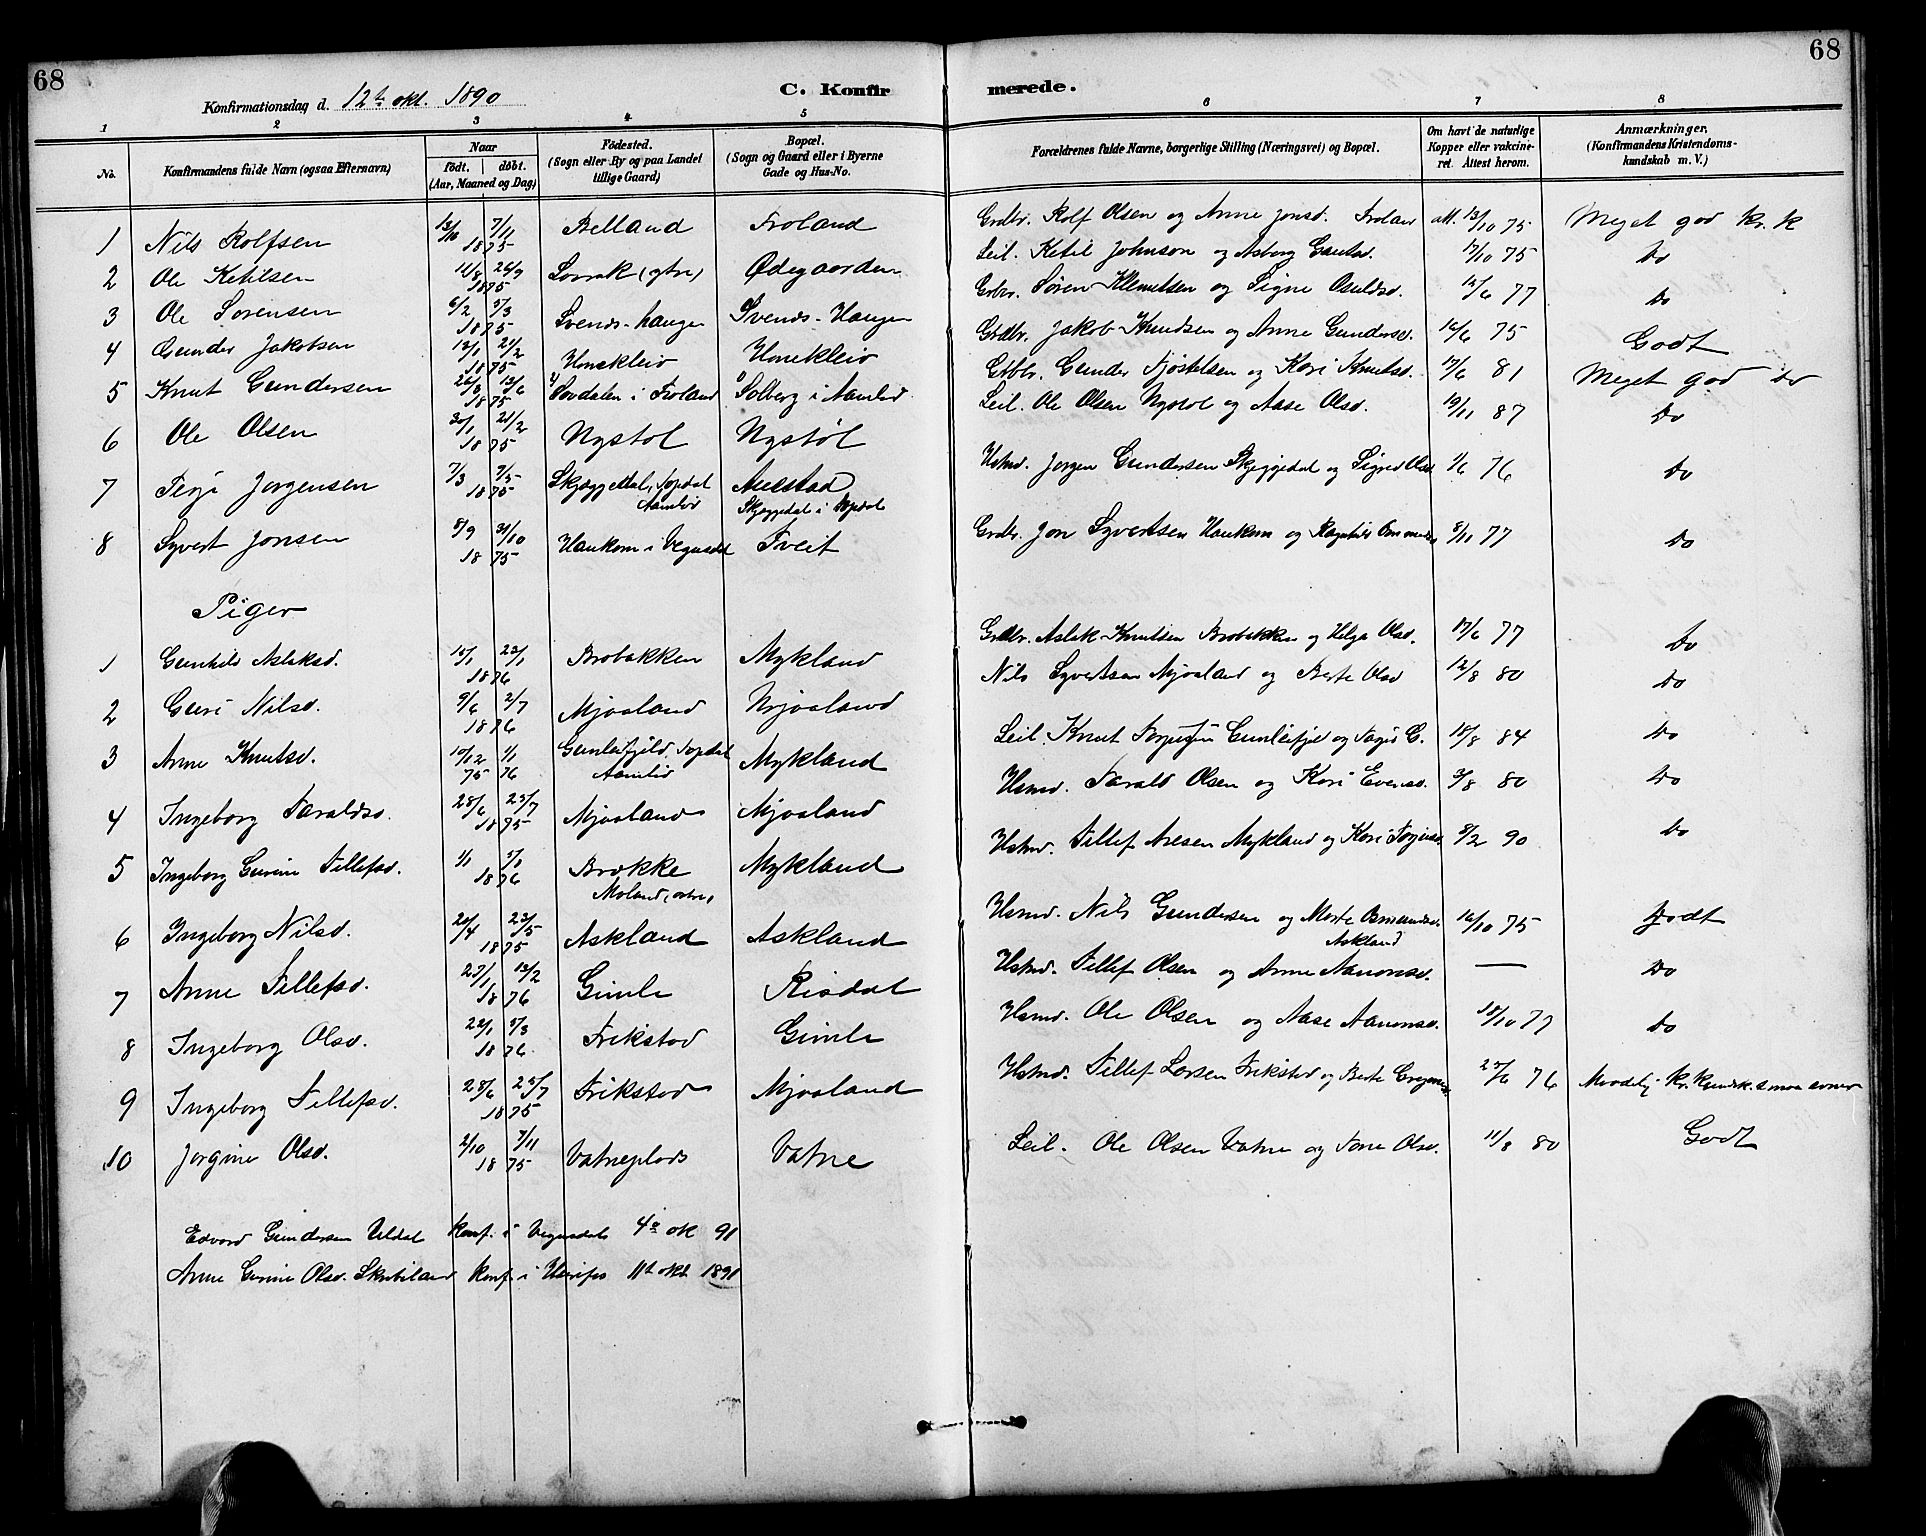 68
68
Konfirmationsdag d. 12te okt. 1890
C. Konfirmerede.
1 2 3 4 5 6 7 8
No.
Konfirmandens fulde Navn (ogsaa Efternavn)
Naar
født. døbt.
(Aar, Maaned og Dag)
Fødested.
(Sogn eller By og paa Landet
tillige Gaard)
Bopæl.
(Sogn og Gaard eller i Byerne
Gade og Hus-No.
Forældrenes fulde Navne, borgerlige Stilling (Næringsvei) og Bopæl.
Om havt de naturlige
Kopper eller vakcine-
ret. Attest herom.
Anmærkninger,
(Konfirmandens Kristendoms-
kundskab m. V.)
1 Nils Rolfsen 13/10 7/11 1875 Belland Froland Grdbr. Rolf Olsen og Anne Jonsd. Froland att. 13/10 75 Meget god kr. k
2 Ole Ketilsen 11/8 26/9 1875 (ytre) Ødegaarden Leil. Ketil Johnson og Asborg Gautsd. 17/10 75 Do
3 Ole Sørensen 6/2 5/3 1875 Svends-haugen Svends-Haugen Grbr. Søren Klemetsen og Signe Osuldsd. 15/6 77 Do
4 Gunder Jakobsen 12/1 21/2 1875 Unekleiv Unekleiv Grdbr. Jakob Knudsen og Anne Gundersd. 16/6 75 Godt
5 Knut Gundersen 26/3 13/6 1875 i Froland Solberg i Aamlid Grbr. Gunder Fjøstelsen og Kari Knutsd. 17/6 81 Meget god Do
6 Ole Olsen 30/1 21/2 1875 Nystøl Nystøl Leil. Ole Olsen Nystøl og Aase Olsd. 19/11 87 Do
7 Terje Jørgensen 7/3 7/5 1875 Skjeggedal, Topdal Aamlid Aulestad Skjeggedal i Topdal Hsmd. Jørgen Gundersen Skjeggedal og Signe Olsd 1/6 76 Do
8 Syvert Jonsen 8/9 31/10 1875 Haukom i Vegusdal Tveit Grdbr. Jon Syvertsen Haukom og Ragnhild 8/11 77 Do
Piger
1 Gunhild Aslaksd. 15/1 23/1 1876 Brobakken Mykland Grdbr. Aslak Knutsen Brobakken og Helga Olsd. 17/6 77 Do
2 Guri Nilsd. 9/6 2/7 1876 Mjosland Mjosland Nils Syvertsen Mjosland og Berte Olsd 12/8 80 Do
3 Anne Knutsd. 10/12 1/1 75 76 Gunleifjeld, Topdal Aamlid Mykland Leil. Knut Gunleifjeld og G. 18/8 84 Do
4 Ingeborg Taraldsd. 28/6 25/7 1875 Mjosland Mjosland Hsmd. Tarald Olsen og Kari Evensd. 3/8 80 Do
5 Ingeborg Gurine Tellefsd. 1/1 5/1 1876 Brække Moland, østre Mykland Hsmd. Tellef Aresen Mykland og Kari 8/2 90 Do
6 Ingeborg Nilsd. 20/4 23/5 1875 Askland Askland Hsmd. Nils Gundersen og Marte Osmundsd. Askland 16/10 75 Godt
7 Anne Tellefsd. 23/1 13/2 1876 Gimle Risdal Hsmd. Tellef Olsen og Anne Aanonsd. — Do
8 Ingeborg Olsd. 22/1 5/3 1876 Frikstad Gimle Hsmd. Ole Olsen og Aase Aanonsd. 18/10 77 Do
9 Ingeborg Tellefsd. 28/6 25/7 1875 Frikstad Mjosland Hsmd. Tellef Larsen Frikstad og Berte 27/6 76 Maadelig kr. kundsk.
10 Jørgine Olsd. 2/10 7/11 1875 Vatneplads Vatne Leil. Ole Olsen Vatne og Tone Olsd. 11/8 80 Godt
Edvard Gundersen Uldal konf. i Vegusdal 4de ok 91
Anne Gurine Olsd. Skubiland konf. i 11te okt. 1891